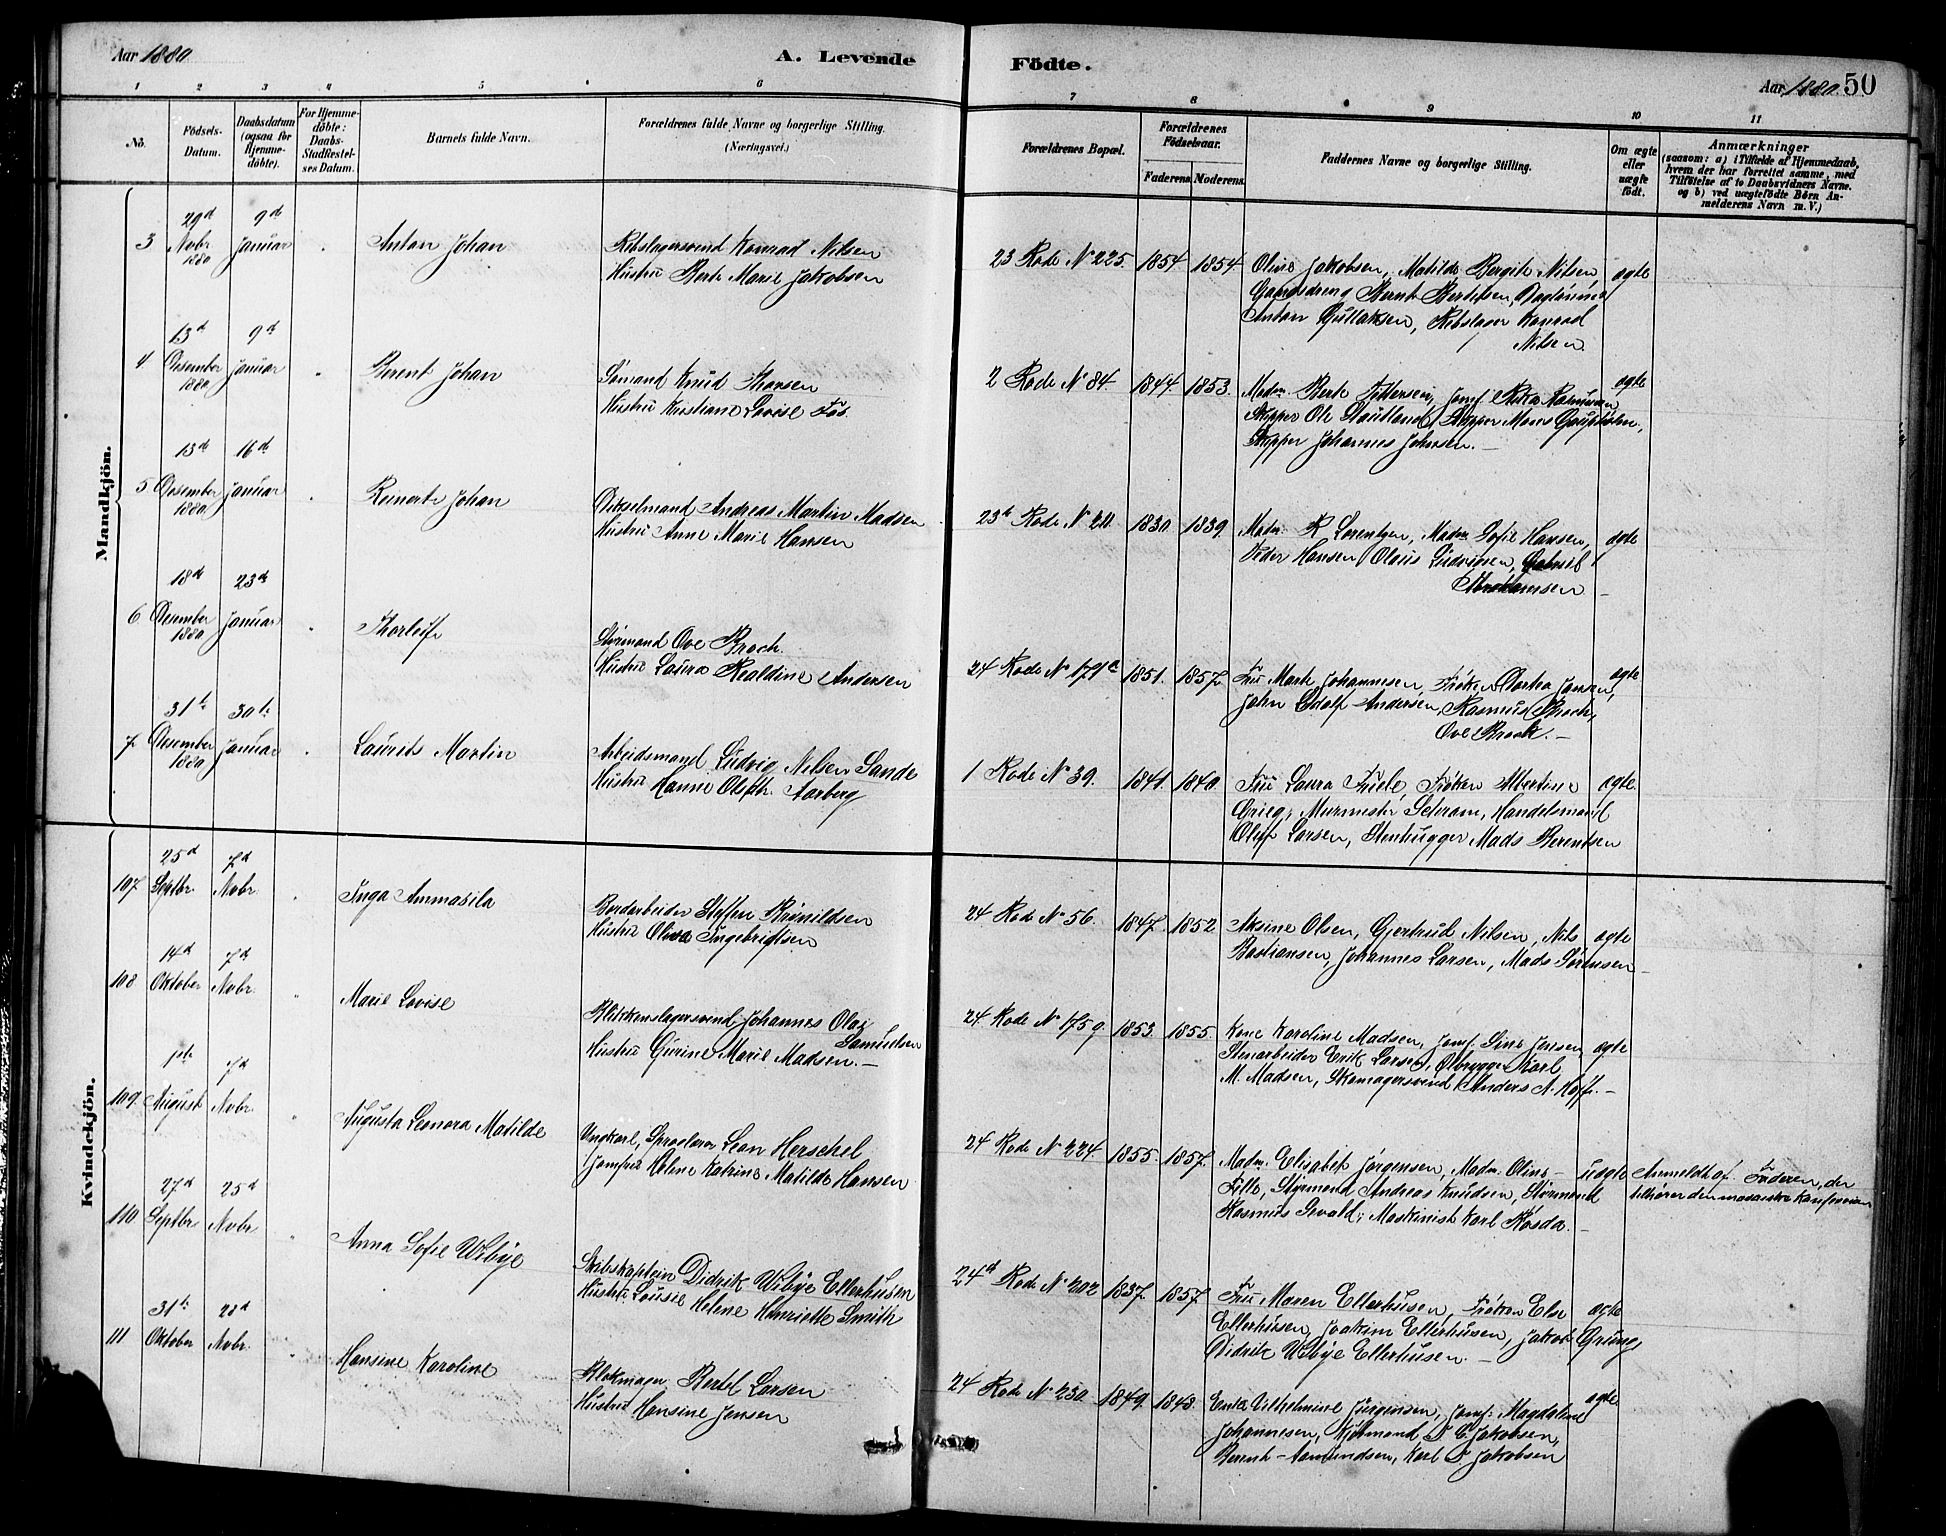 Aar 1880
A. Levende Födte.
Aar 1880 50
1 2 3 4 5 6 7 8 9 10 11
No.
Födsels-Datum.
Daabsdatum (ogsaa for Hjemmedöbte).
For Hjemmedöbte: Daabs-Stadfestelses Datum.
Barnets fulde Navn.
Forældrenes fulde Navne og borgerlige Stilling.
(Næringsvei.)
Forældrenes Bopæl.
Forældrenes Födselsaar.
Faderens. Moderens.
Faddernes Navne og borgerlige Stilling.
Om ægte eller uægte født.
Anmærkninger
(saasom: a) i Tilfælde af Hjemmedaab, hvem der har forrettet samme, med Tilföielse af to Daabsvidners Navne, og b) ved uægtefödte Börn Anmelderens Navn m. V.)
Mandkjön.
3 29d Novbr 1880 9d Januar Anton Johan
Rebslagersvend Konrad Nilsen
Hustru Berte Marie Jakobsen
23 Rode No 225. 1854 1854
Oline Jakobsen, Matilde Bergite Nilsen
Gaardsdreng Bernt Bertelsen,
Anton Gullaksen, Rebslager Konrad
Nilsen
ægte
4 13d Desember 1880 9d Januar Berent Johan
Sömand Knud Thorsen
Hustru Kristiane Lovise
2 Rode No 84 1844. 1853.
Madm. Berte Pettersen, Jomf. Rasmussen
Skipper Ole Skipper Mons
Skipper Johannes Johnsen. —
ægte
5 13d Desember 1880 16d Januar Reinert Johan
Dikselmand Andreas Martin Madsen
Hustru Anne Marie Hansen
23d Rode No 20. 1830. 1839.
Madm. R Lorentzen, Madm Sofie Hansen,
Peder Hansen, Olaus Ludvigsen, Gabriel
Abrahamsen —
ægte
6 18d Desember 1880 23d Januar Thorleif
Styrmand Ove Broch.
Hustru Laura Realdine Andersen
24 Rode No 171a 1851. 1857.
Fru Marte Johannesen, Fröken Jansen,
John Edolf Andersen, Rasmus Broch,
Ove Brock. —
ægte
7 31te Desember 1880 30te Januar Laurits Martin
Arbeidsmand Ludvig Nilsen Sande
Hustru Hanne Oleth. Aarberg
1 Rode No 39. 1841. 1840.
Fru Laura Friele, Fröken Albertine
Grieg, Murmester Handelsmand
Oluf Larsen, Stenhugger Mads Berentsen
ægte.
Kvindekjön.
107 25d Septbr. 7d Novbr. Inga Ammasila
Bordarbeider Steffen Brynildsen
Hustru Oliva Ingebrigtsen
24 Rode No 56. 1847. 1852.
Aksine Olsen, Gjertrud Nilsen, Nils
Bastiansen, Johannes Larsen, Mads Sörensen —
ægte
108 14d Oktober 7d Novbr. Marie Lovise
Blikkenslagersvend Johannes Olai
Samuelsen
Hustru Gurine Marie Madsen. —
24 Rode No 175g. 1853. 1855.
Kone Karoline Madsen, Jomf. Sine Jensen
Stenarbeider Erik Larsen, Karl
M. Madsen, Skomagersvend Anders N. Hoff. —
ægte
109. 1ste August 7d Novbr. Augusta Leonora Matilde
Ungkarl, Sproglærer Leon Herschel
Jomfru Helene Katrine Matilde Hansen
24 Rode No 224. 1855. 1857.
Madm. Elisabet Jörgensen, Madm. Oline
Styrmand Andreas Knudsen, Styrmand
Rasmus Sevald, Maskinist Karl Rosda. —
uægte
Anmeldt af Faderen, der
tilhører den mosaiske konfession
110 27d Septbr 25d Novbr. Anna Sofie Wibye
Skibskaptein Didrik Wibye Ellerhusen
Hustru Lousie Helene Henriette Smith
24d Rode No 202 1837. 1857.
Fru Maren Ellerhusen, Fröken Else
Ellerhusen, Joakim Ellerhusen, Jakob Grung,
Didrik Wibye Ellerhusen. —
ægte
111 31te Oktober 28d Novbr. Hansine Karoline
Blokmager Bertel Larsen
Hustru Hansine Jensen
24 Rode No 230. 1849. 1848.
Enke Vilhelmine Jörgensen, Jomf. Magdalene
Johannesen, Jakobsen,
Berent Amundsen, Karl Jakobsen
ægte